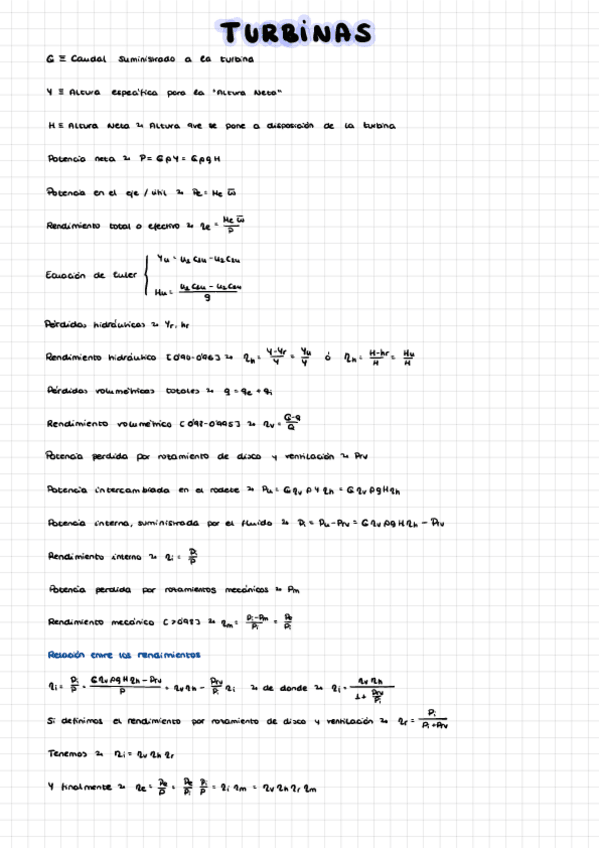 TURBINAS
G ≡ Caudal suministrado a la turbina
Y ≡ Altura específica para la "Altura Neta"
H ≡ Altura Neta → Altura que se pone a disposición de la turbina
Potencia neta → P = GρY = GρgH
Potencia en el eje / útil → Pe = Me ω̅
Rendimiento total o efectivo → ηe = Me ω̅ / P
Ecuación de Euler { Yu = u1 c1u - u2 c2u
Hu = (u1 c1u - u2 c2u) / g
Pérdidas hidráulicas → Yr, hr
Rendimiento hidráulico [0'90-0'96] → ηh = (Y-Yr)/Y = Yu/Y ó ηh = (H-hr)/H = Hu/H
Pérdidas volumétricas totales → q = qe + qi
Rendimiento volumétrico [0'98-0'995] → ηv = (G-q)/G
Potencia perdida por rozamiento de disco y ventilación → Prv
Potencia intercambiada en el rodete → Pu = G ηv ρ Y ηh = G ηv ρgH ηh
Potencia interna, suministrada por el fluido → Pi = Pu - Prv = G ηv ρgH ηh - Prv
Rendimiento interno → ηi = Pi/P
Potencia perdida por rozamientos mecánicos → Pm
Rendimiento mecánico [>0'98] → ηm = (Pi-Pm)/Pi = Pe/Pi
Relación entre los rendimientos
ηi = Pi/P = (G ηv ρgH ηh - Prv)/P = ηv ηh - Prv/Pi ηi → de donde → ηi = ηv ηh / (1 + Prv/Pi)
Si definimos el rendimiento por rozamiento de disco y ventilación → ηr = Pi/(Pi+Prv)
Tenemos → ηi = ηv ηh ηr
Y finalmente → ηe = Pe/P = Pe/Pi Pi/P = ηi ηm = ηv ηh ηr ηm